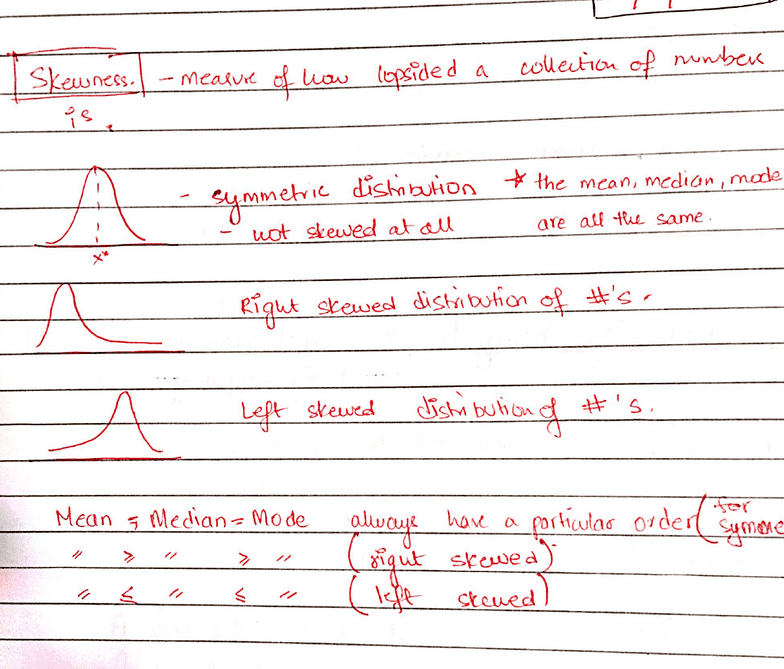 Skewness. - measure of how lopsided a collection of numbers
is.
- symmetric distribution * the mean, median, mode
- not skewed at all are all the same.
x*
Right skewed distribution of #'s.
Left skewed distribution of #'s.
Mean = Median = Mode always have a particular order (for
symme
" ≥ " ≥ " (right skewed)
" ≤ " ≤ " (left skewed)